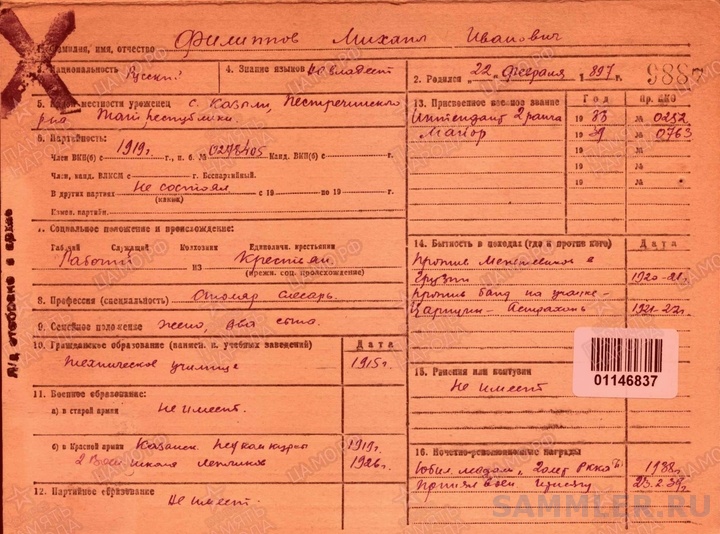 1. Фамилия, имя, отчество Филиппов Михаил Иванович
3. Национальность Русский
4. Знание языков не владеет
2. Родился „22" февраля 1897 г.
9887
5. Какой местности уроженец с. Казыли, Пестречинского
р-на Тат. республики.
6. Партийность:
Член ВКП(б) с 1919 г., п. б. № 0278405 Канд. ВКП(б) с г.
Член, канд. ВЛКСМ с г. Беспартийный.
В других партиях Не состоял с 19 по 19 г.
(каких)
Измен. партийн.
7. Социальное положение и происхождение:
Рабочий Служащий Колхозник Единоличн. крестьянин
Рабочий из Крестьян
(прежн. соц. происхождение)
8. Профессия (специальность) Столяр слесарь.
9. Семейное положение Жена, два сына.
10. Гражданское образование (наимен. и. учебных заведений) Дата
техническое училище 1915 г.
11. Военное образование:
а) в старой армии Не имеет.
б) в Красной армии Казанск. пед ком курсы 1919 г.
2 школа летчиков 1926 г.
12. Партийное образование Не имеет.
13. Присвоенное военное звание Год Пр. НКО
Интендант 2 ранга 19 38 № 0252
Майор 19 39 № 0763
19 №
19 №
19 №
14. Бытность в походах (где и против кого) Дата
Против Меньшевиков в
Грузии 1920-21 г.
против банд на участке
Царицин - Астрахань 1921-22 г.
15. Ранения или контузии
Не имеет
01146837
16. Почетно-революционные награды
Юбил. медаль „20 лет РККА" 1938 г.
Принял воен присягу 23.2.39 г.
Л/д отобрано в архив
ЦАМО.РФ
ПАМЯТЬ НАРОДА
SAMMLER.RU